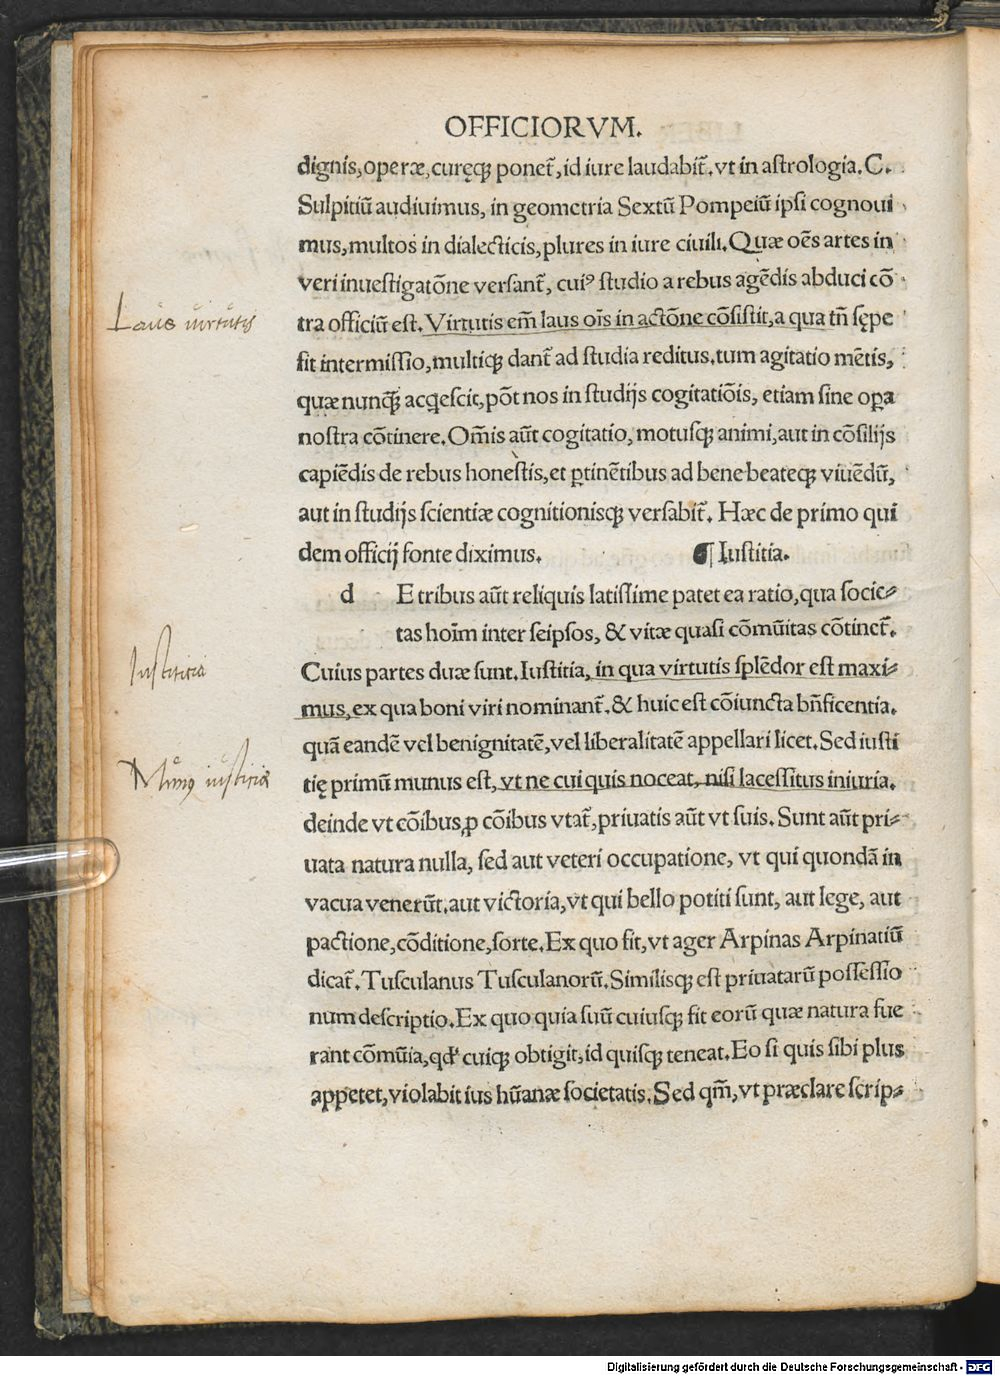 OFFICIORVM.
dignis, operæ, curęq; ponet̃, id iure laudabit̃. vt in astrologia. C.
Sulpitiũ audiuimus, in geometria Sextũ Pompeiũ ipsi cognoui
mus, multos in dialecticis, plures in iure ciuili. Quæ oẽs artes in
veri inuestigatõne versant̃, cuiꝰ studio a rebus agẽdis abduci cõ
tra officiũ est. Virtutis em̃ laus ois̃ in actõne cõsistit, a qua tñ sępe
Laus virtutis
fit intermissio, multiq; dant̃ ad studia reditus. tum agitatio mẽtis,
quæ nunq̃; acq̃escit, põt nos in studijs cogitatiõis, etiam sine oꝑa
nostra cõtinere. Om̃is aũt cogitatio, motusq; animi, aut in cõsilijs
capiẽdis de rebus honestis, et ꝑtinẽtibus ad bene beateq; viuẽdũ,
aut in studijs scientiæ cognitionisq; versabit̃. Hæc de primo qui
dem officij fonte diximus. ¶ Iustitia.
d E tribus aũt reliquis latissime patet ea ratio, qua socie⸗
tas hoĩm inter seipsos, & vitæ quasi cõmũitas cõtinet̃.
Cuius partes duæ sunt. Iustitia, in qua virtutis splẽdor est maxi⸗
Iustitia
mus, ex qua boni viri nominant̃. & huic est cõiuncta bñficentia.
quã eandẽ vel benignitatẽ, vel liberalitatẽ appellari licet. Sed iusti
tię primũ munus est, vt ne cui quis noceat, nisi lacessitus iniuria.
Munus iustitiæ
deinde vt cõibus ꝓ cõibus vtat̃, priuatis aũt vt suis. Sunt aũt pri⸗
uata natura nulla, sed aut veteri occupatione, vt qui quondã in
vacua venerũt. aut victoria, vt qui bello potiti sunt, aut lege, aut
pactione, cõditione, sorte. Ex quo fit, vt ager Arpinas Arpinatiũ
dicat̃. Tusculanus Tusculanorũ. Similisq; est priuatarũ possessio
num descriptio. Ex quo quia suũ cuiusq; fit eorũ quæ natura fue
rant cõmũia, qđ cuiq; obtigit, id quisq; teneat. Eo si quis sibi plus
appetet, violabit ius hũanæ societatis. Sed qm̃, vt præclare scrip⸗
Digitalisierung gefördert durch die Deutsche Forschungsgemeinschaft - DFG